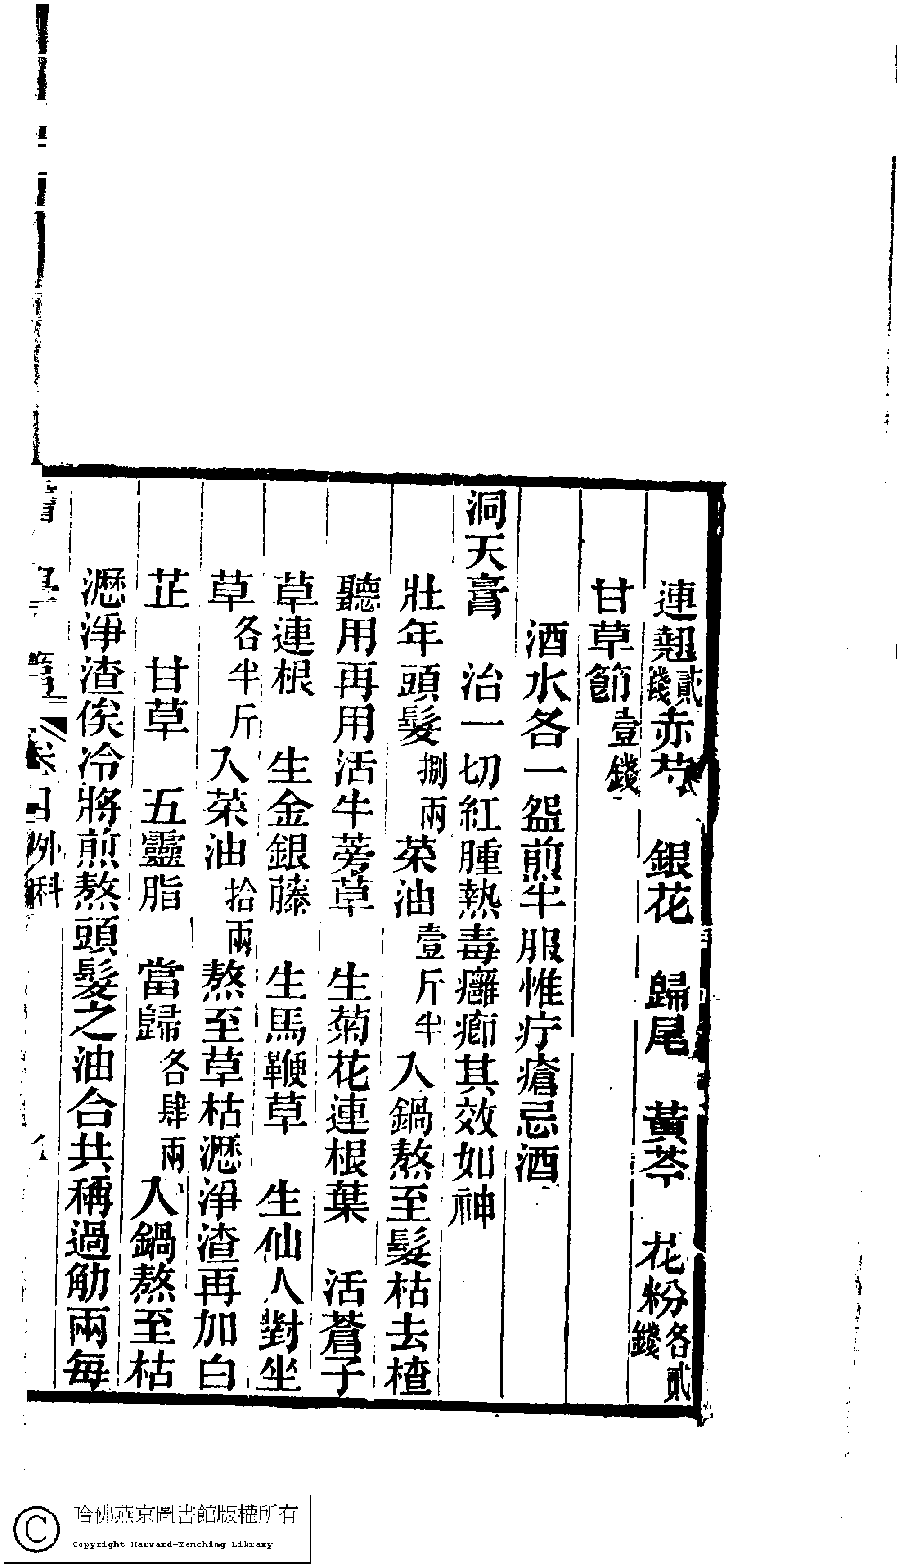 連翹貳錢赤芍 銀花 歸尾 黃芩 花粉各貳錢
甘草節壹錢
酒水各一盌煎半服惟疔瘡忌酒
洞天膏 治一切紅腫熱毒癰癤其效如神
壯年頭髮捌兩菜油壹斤半入鍋熬至髮枯去楂
聽用再用活牛蒡草 生菊花連根葉 活蒼子
草連根 生金銀藤 生馬鞭草 生仙人對坐
草各半斤入菜油拾兩熬至草枯瀝淨渣再加白
芷 甘草 五靈脂 當歸各肆兩入鍋熬至枯
瀝淨渣俟冷將煎熬頭髮之油合共稱過觔兩每
卷四外科
哈佛燕京圖書館版權所有
Copyright Harvard-Yenching Library